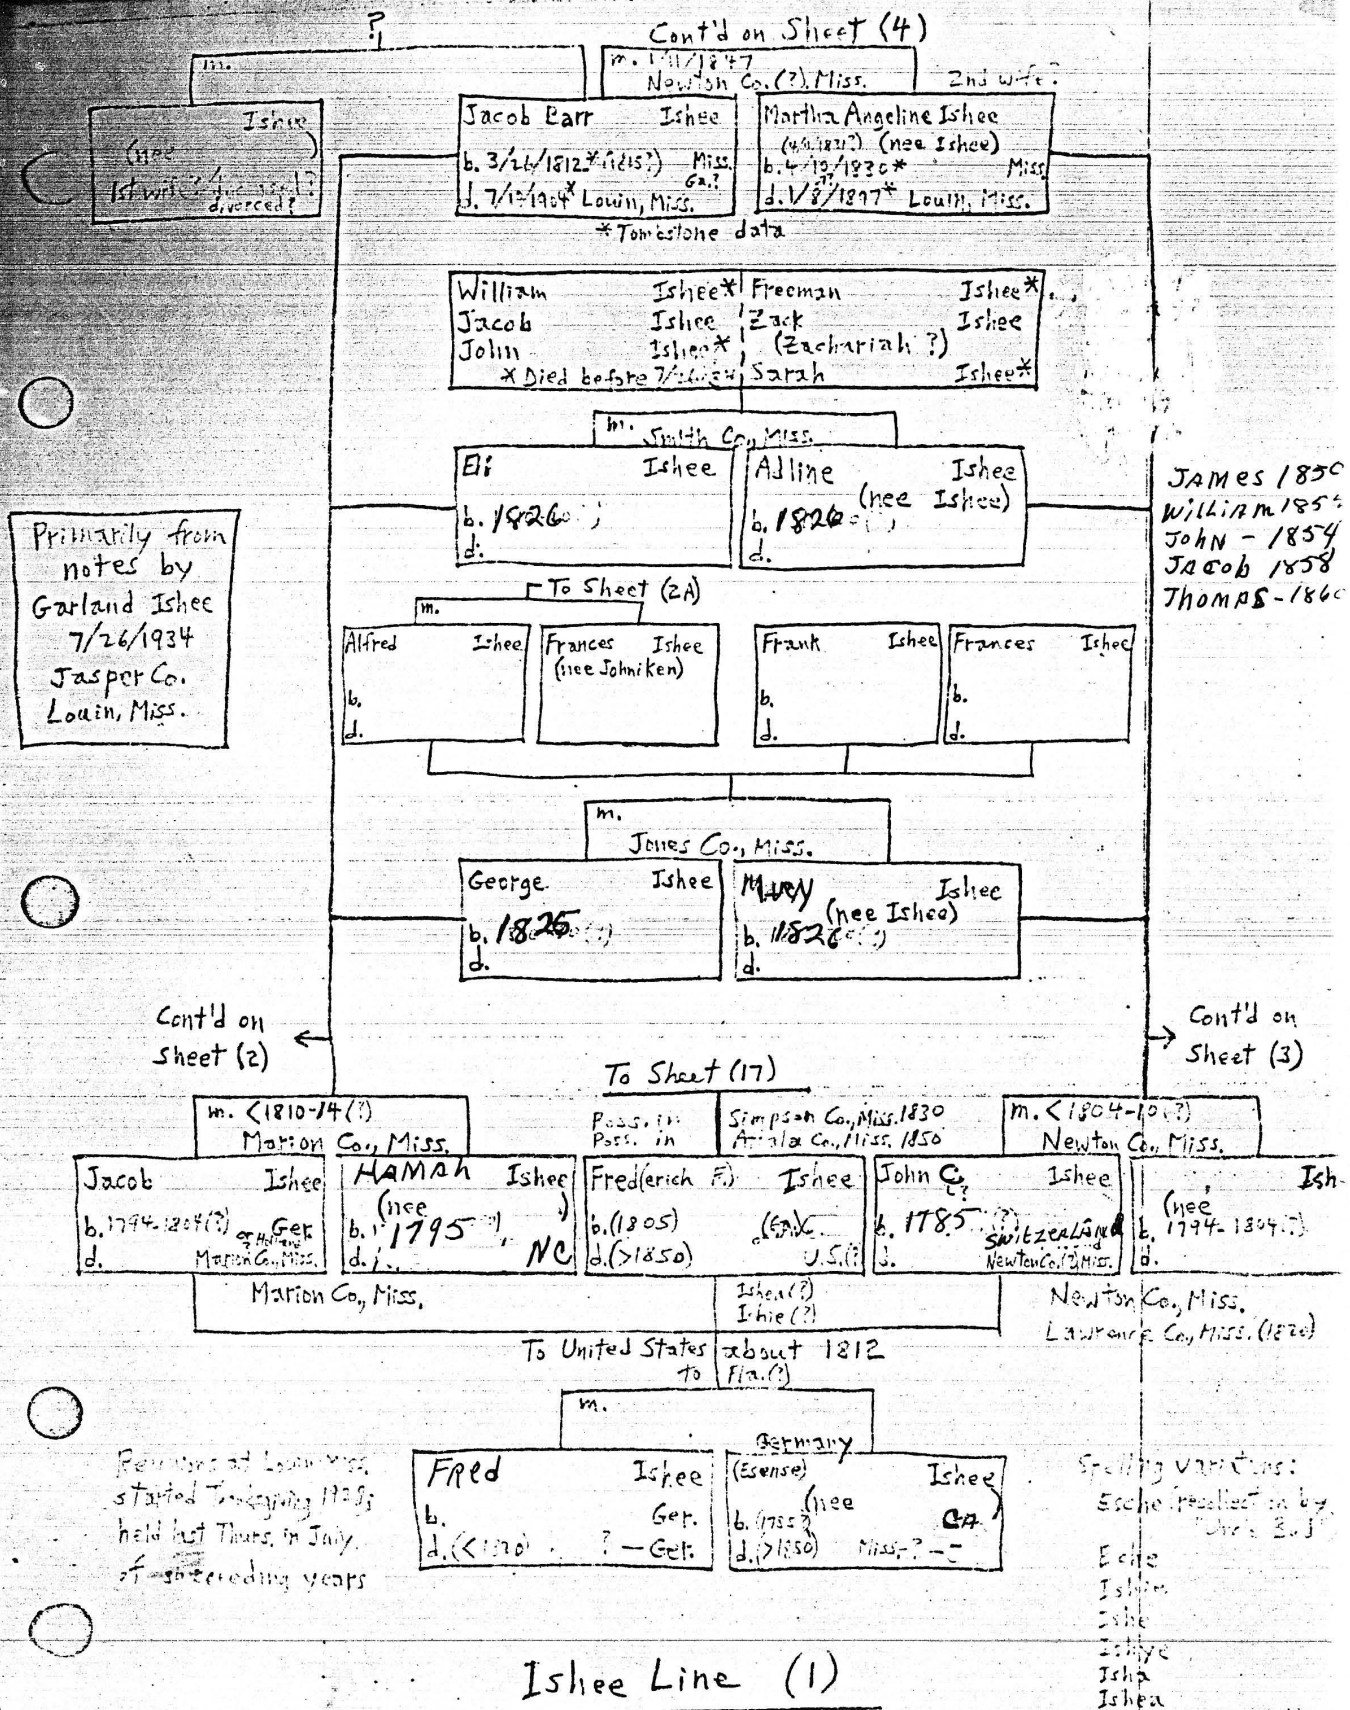 ?
Cont'd on Sheet (4)
m.
m. 1/11/1847
Newton Co.(?), Miss.
2nd wife?
Ishee
(nee )
1st wife? deceased?
divorced?
Jacob Barr Ishee
b. 3/26/1812* (1815?) Miss.
Ga.?
d. 7/19/1904* Louin, Miss.
Martha Angeline Ishee
(nee Ishee)
b. 4/19/1830* Miss.
d. 1/8/1897* Louin, Miss.
*Tombstone data
William Ishee*
Jacob Ishee
John Ishee*
*Died before
Freeman Ishee*
Zack Ishee
(Zachariah ?)
Sarah Ishee*
m.
Smith Co., Miss.
Eli Ishee
b. 1826
d.
Adline Ishee
(nee Ishee)
b. 1826
d.
JAMES 185
William 185
John - 1854
JACOB 1858
ThomAS - 186
Primarily from
notes by
Garland Ishee
7/26/1934
Jasper Co.
Louin, Miss.
To Sheet (2A)
m.
Alfred Ishee
b.
d.
Frances Ishee
(nee Johniken)
Frank Ishee
b.
d.
Frances Ishee
b.
d.
m.
Jones Co., Miss.
George Ishee
b. 1825
d.
Mary Ishee
(nee Ishee)
b. 1826
d.
Cont'd on
Sheet (2)
Cont'd on
Sheet (3)
To Sheet (17)
m. <1810-14(?)
Marion Co., Miss.
Poss. in Simpson Co., Miss. 1830
Poss. in Attala Co., Miss. 1850
m. <1804-10(?)
Newton Co., Miss.
Jacob Ishee
b. 1794-1804(?) Ger.
or Holland
d. Marion Co., Miss.
HAMAh Ishee
(nee )
b. 1795
d. NC
Fred(erich F.) Ishee
b. (1805)
d. (>1850) U.S.(?)
John C. Ishee
b. 1785 (?)
SwitzerLAnd
d. Newton Co.(?), Miss.
Ish
(nee
b. 1794-1804(?)
d.
Marion Co., Miss.
Ishea(?)
Ishie(?)
Newton Co., Miss.
Lawrence Co., Miss. (1820)
To United States about 1812
to Fla.(?)
m.
Germany
FRed Ishee
b. Ger.
d. ? - Ger.
(Esense) Ishee
(nee )
b. (1755?) GA
d. (>1850) Miss.-?
Reunions at Louin, Miss.
started Thanksgiving
held last Thurs. in July
of succeeding years
Spelling variations:
Esche (recollection by
Eche
Ishim
Ishe
Ishye
Isha
Ishea
Ishee Line (1)